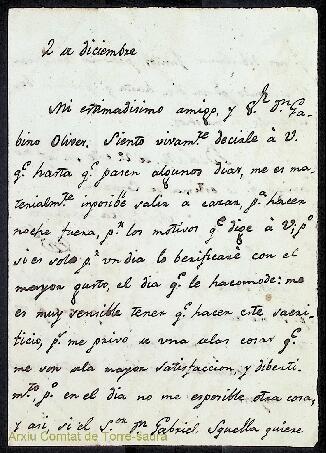 2 de diciembre
Mi estimadisimo amigo, y Sr. Dn. Ga-
bino Oliver. Siento vivamte. decirle à V.
qe. hasta qe. pasen algunos dias, me es ma-
terialmte. inposible salir a cazar, pa. hacer
noche fuera, pr. los motivos qe. dige à V; po.
si es solo pr. un dia lo berificaré con el
mayor gusto, el dia qe. le hacomode: me
es muy sensible tener qe. hacer este sacri-
ficio, ps. me privo de una de las cosas qe.
me son de la mayor satisfaccion, y diberti-
mto., po. en el dia no me esposible otra cosa,
y asi, si el Sor. Dn. Gabriel Squella quiere
Arxiu Comtat de Torre-saura